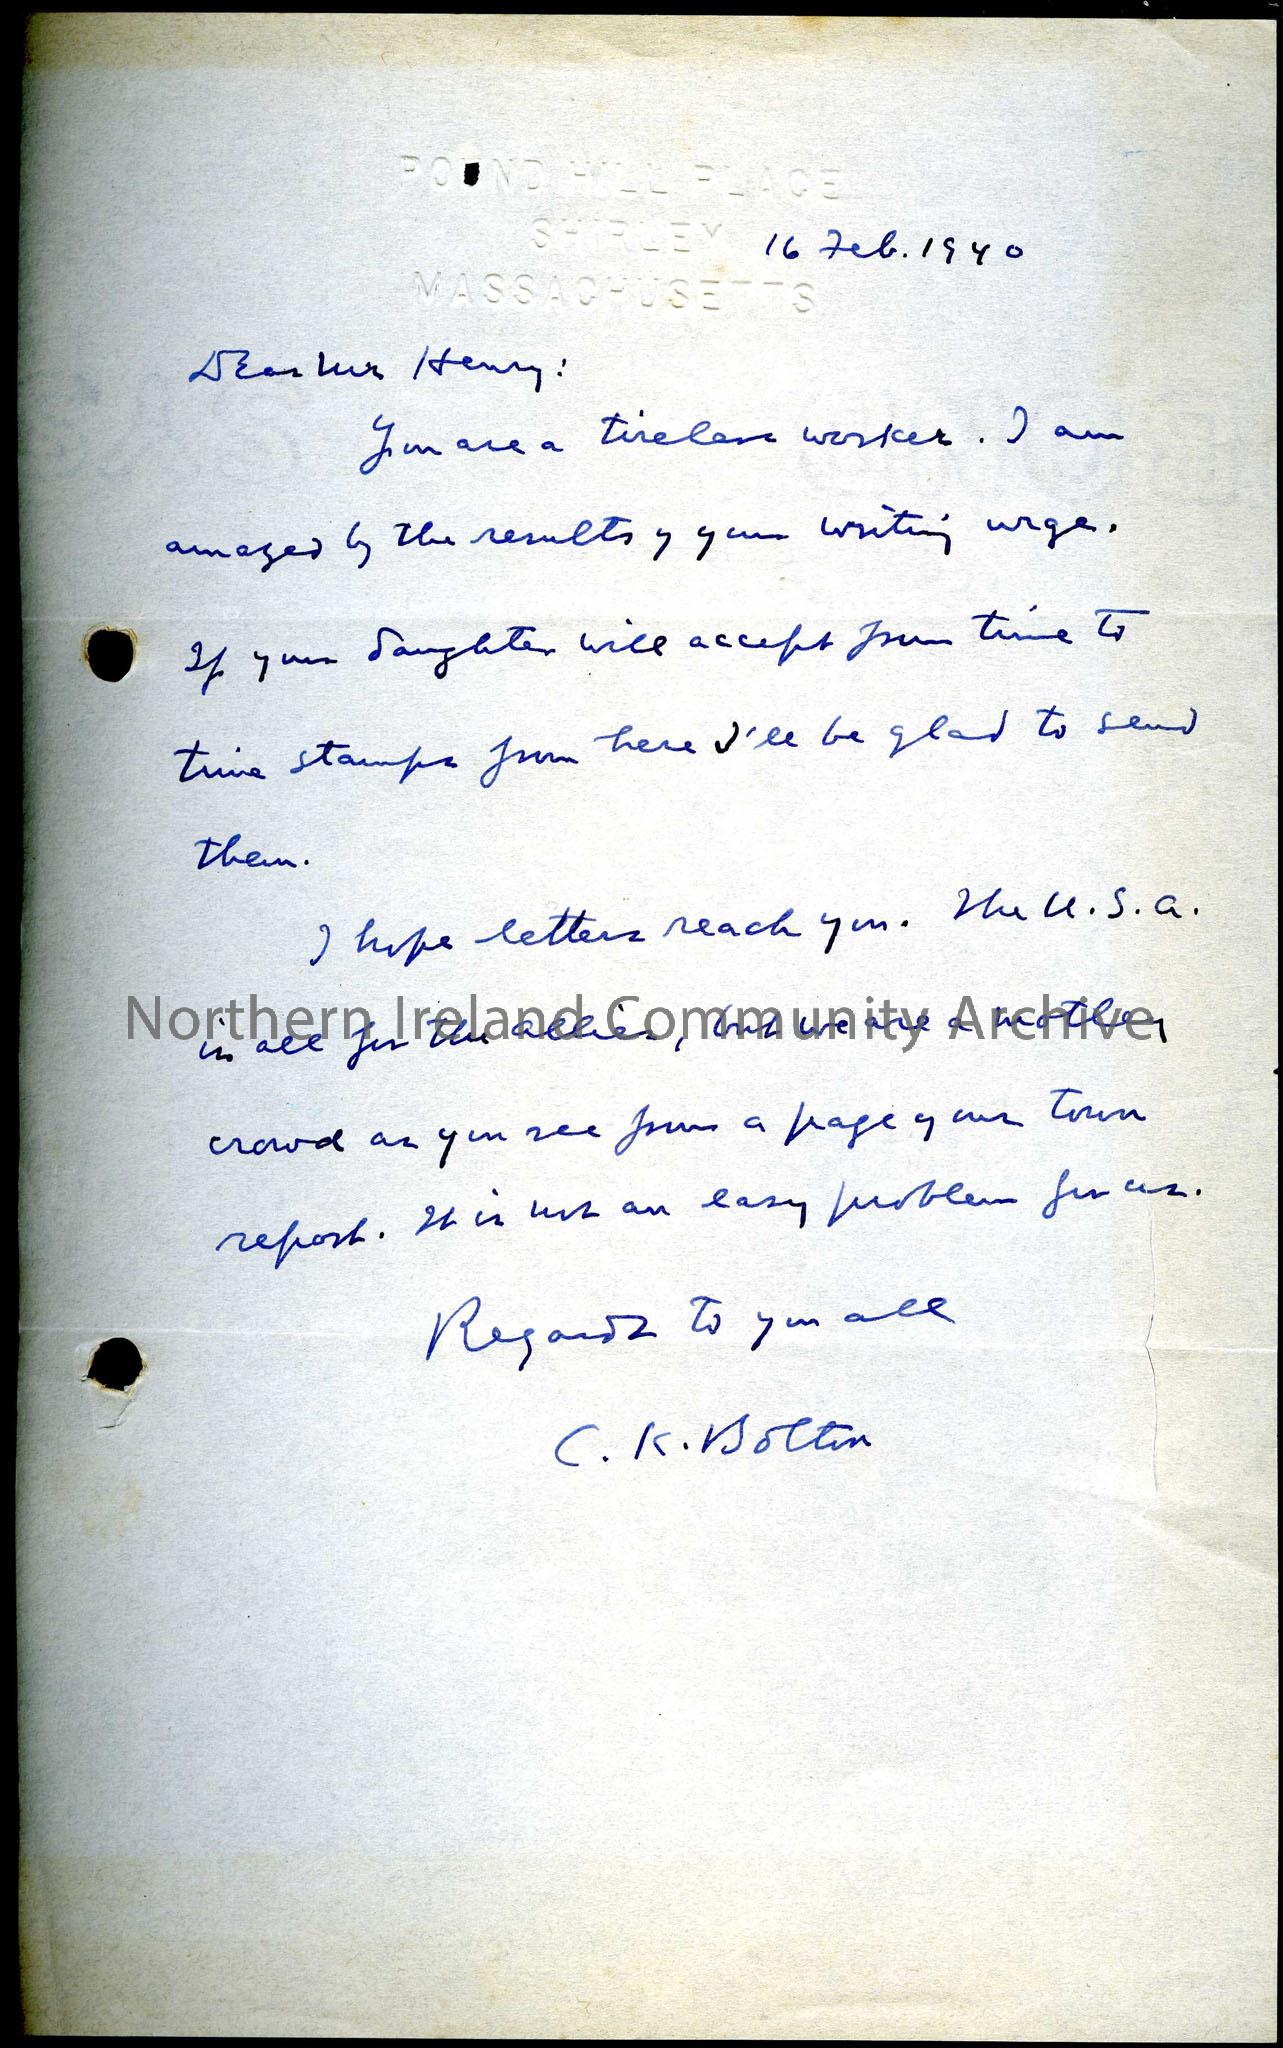 POUND HILL PLACE
SHIRLEY
MASSACHUSETTS
16 Feb. 1940
Dear Mr Henry:
You are a tireless worker. I am
amazed by the results of your writing urge.
If your daughter will accept from time to
time stamps from here I'll be glad to send
them.
I hope letters reach you. The U.S.A.
is all for the allies, but we are a motley
crowd as you see from a page of our town
report. It is not an easy problem for us.
Regards to you all
C. K. Bolton
Northern Ireland Community Archive